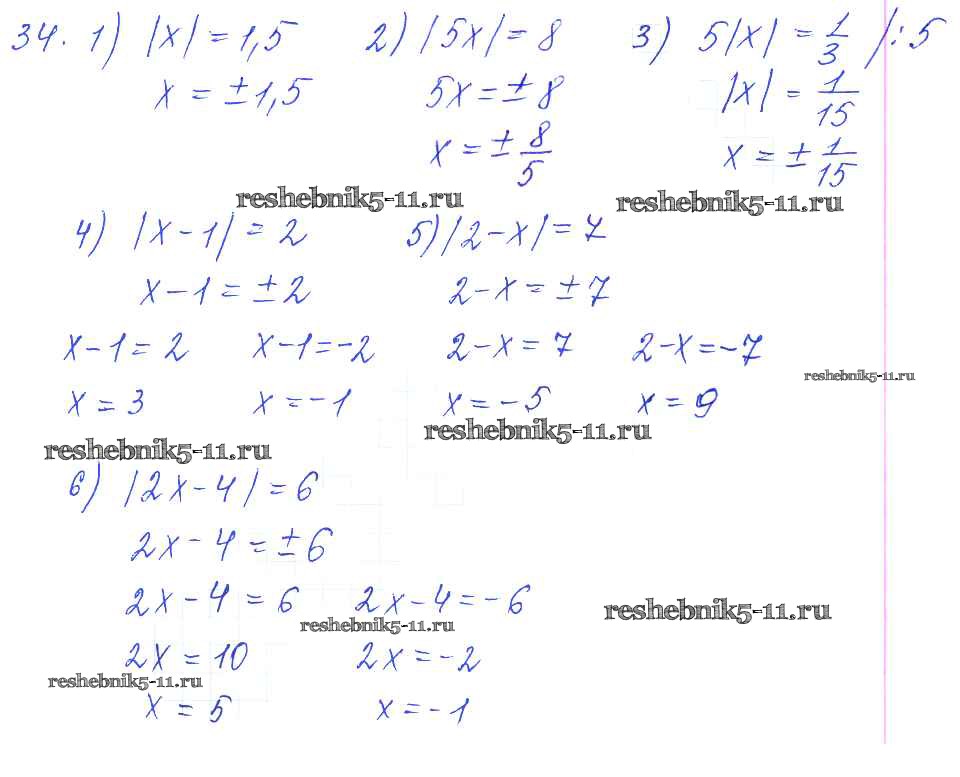 34. 1) |x| = 1,5 2) |5x| = 8 3) 5|x| = 1/3 |:5
x = ±1,5 5x = ±8 |x| = 1/15
x = ± 8/5 x = ± 1/15
reshebnik5-11.ru reshebnik5-11.ru
4) |x - 1| = 2 5) |2 - x| = 7
x - 1 = ±2 2 - x = ±7
x - 1 = 2 x - 1 = -2 2 - x = 7 2 - x = -7
reshebnik5-11.ru
x = 3 x = -1 x = -5 x = 9
reshebnik5-11.ru reshebnik5-11.ru
6) |2x - 4| = 6
2x - 4 = ±6
2x - 4 = 6 2x - 4 = -6
reshebnik5-11.ru reshebnik5-11.ru
2x = 10 2x = -2
reshebnik5-11.ru
x = 5 x = -1